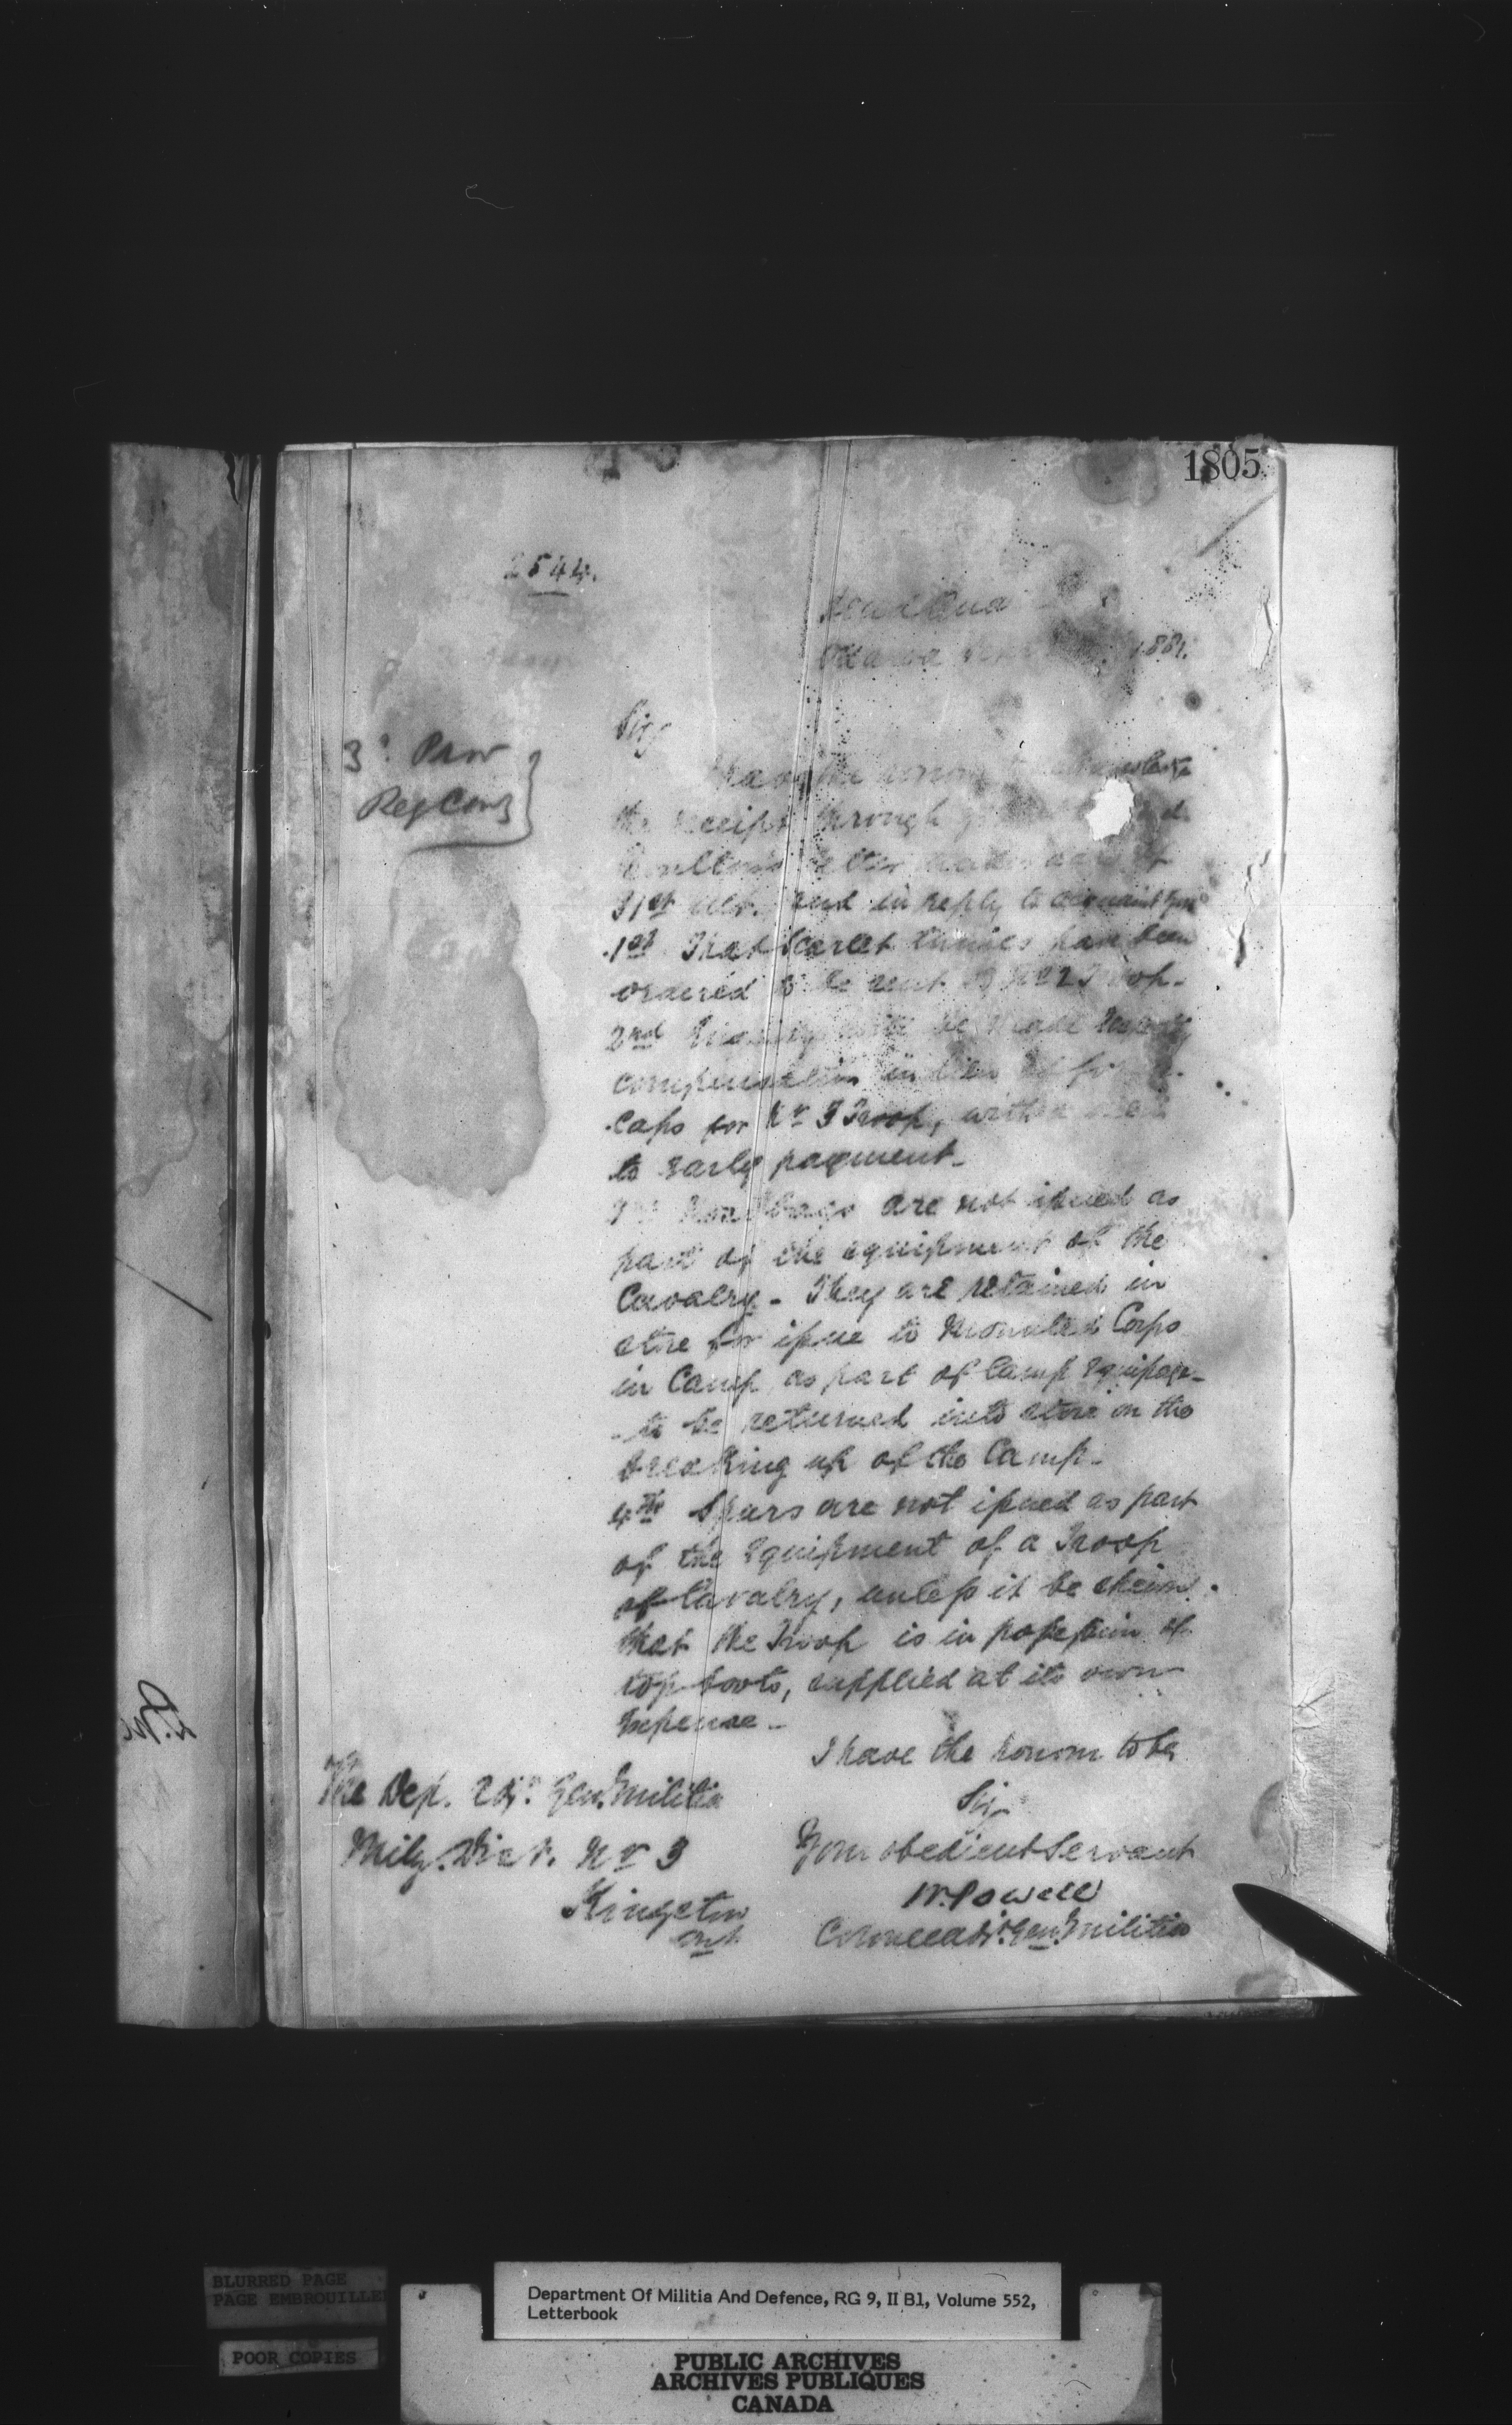 1805
2544.
Head Qua
Ottawa 1881.
3d Prov
Reg Cavy
Sir,
I have the honor to acknowledge
the receipt through
letter under date of
31st ult. and in reply to acquaint you
1st That Scarlet tunics have been
ordered to be sent to No 2 Troop.
2nd Inquiry will be made
compensation in lieu of forage
Caps for No 3 Troop, with a view
to early payment.
3rd Nose bags are not issued as
part of the equipment of the
Cavalry. They are retained in
store for issue to Mounted Corps
in Camp, as part of Camp Equipage
- to be returned into store on the
breaking up of the Camp.
4th Spurs are not issued as part
of the Equipment of a Troop
of Cavalry, unless it be shewn
that the Troop is in possession of
top boots, supplied at its own
Expense.
I have the honour to be
Sir,
Your obedient Servant
W. Powell
Colonel Adjt. Genl. Militia
The Dep. Adjt. Genl. Militia
Mily. Dist. No 3
Kingston
Ont.
BLURRED PAGE
PAGE EMBROUILLE
POOR COPIES
Department Of Militia And Defence, RG 9, II B1, Volume 552,
Letterbook
PUBLIC ARCHIVES
ARCHIVES PUBLIQUES
CANADA